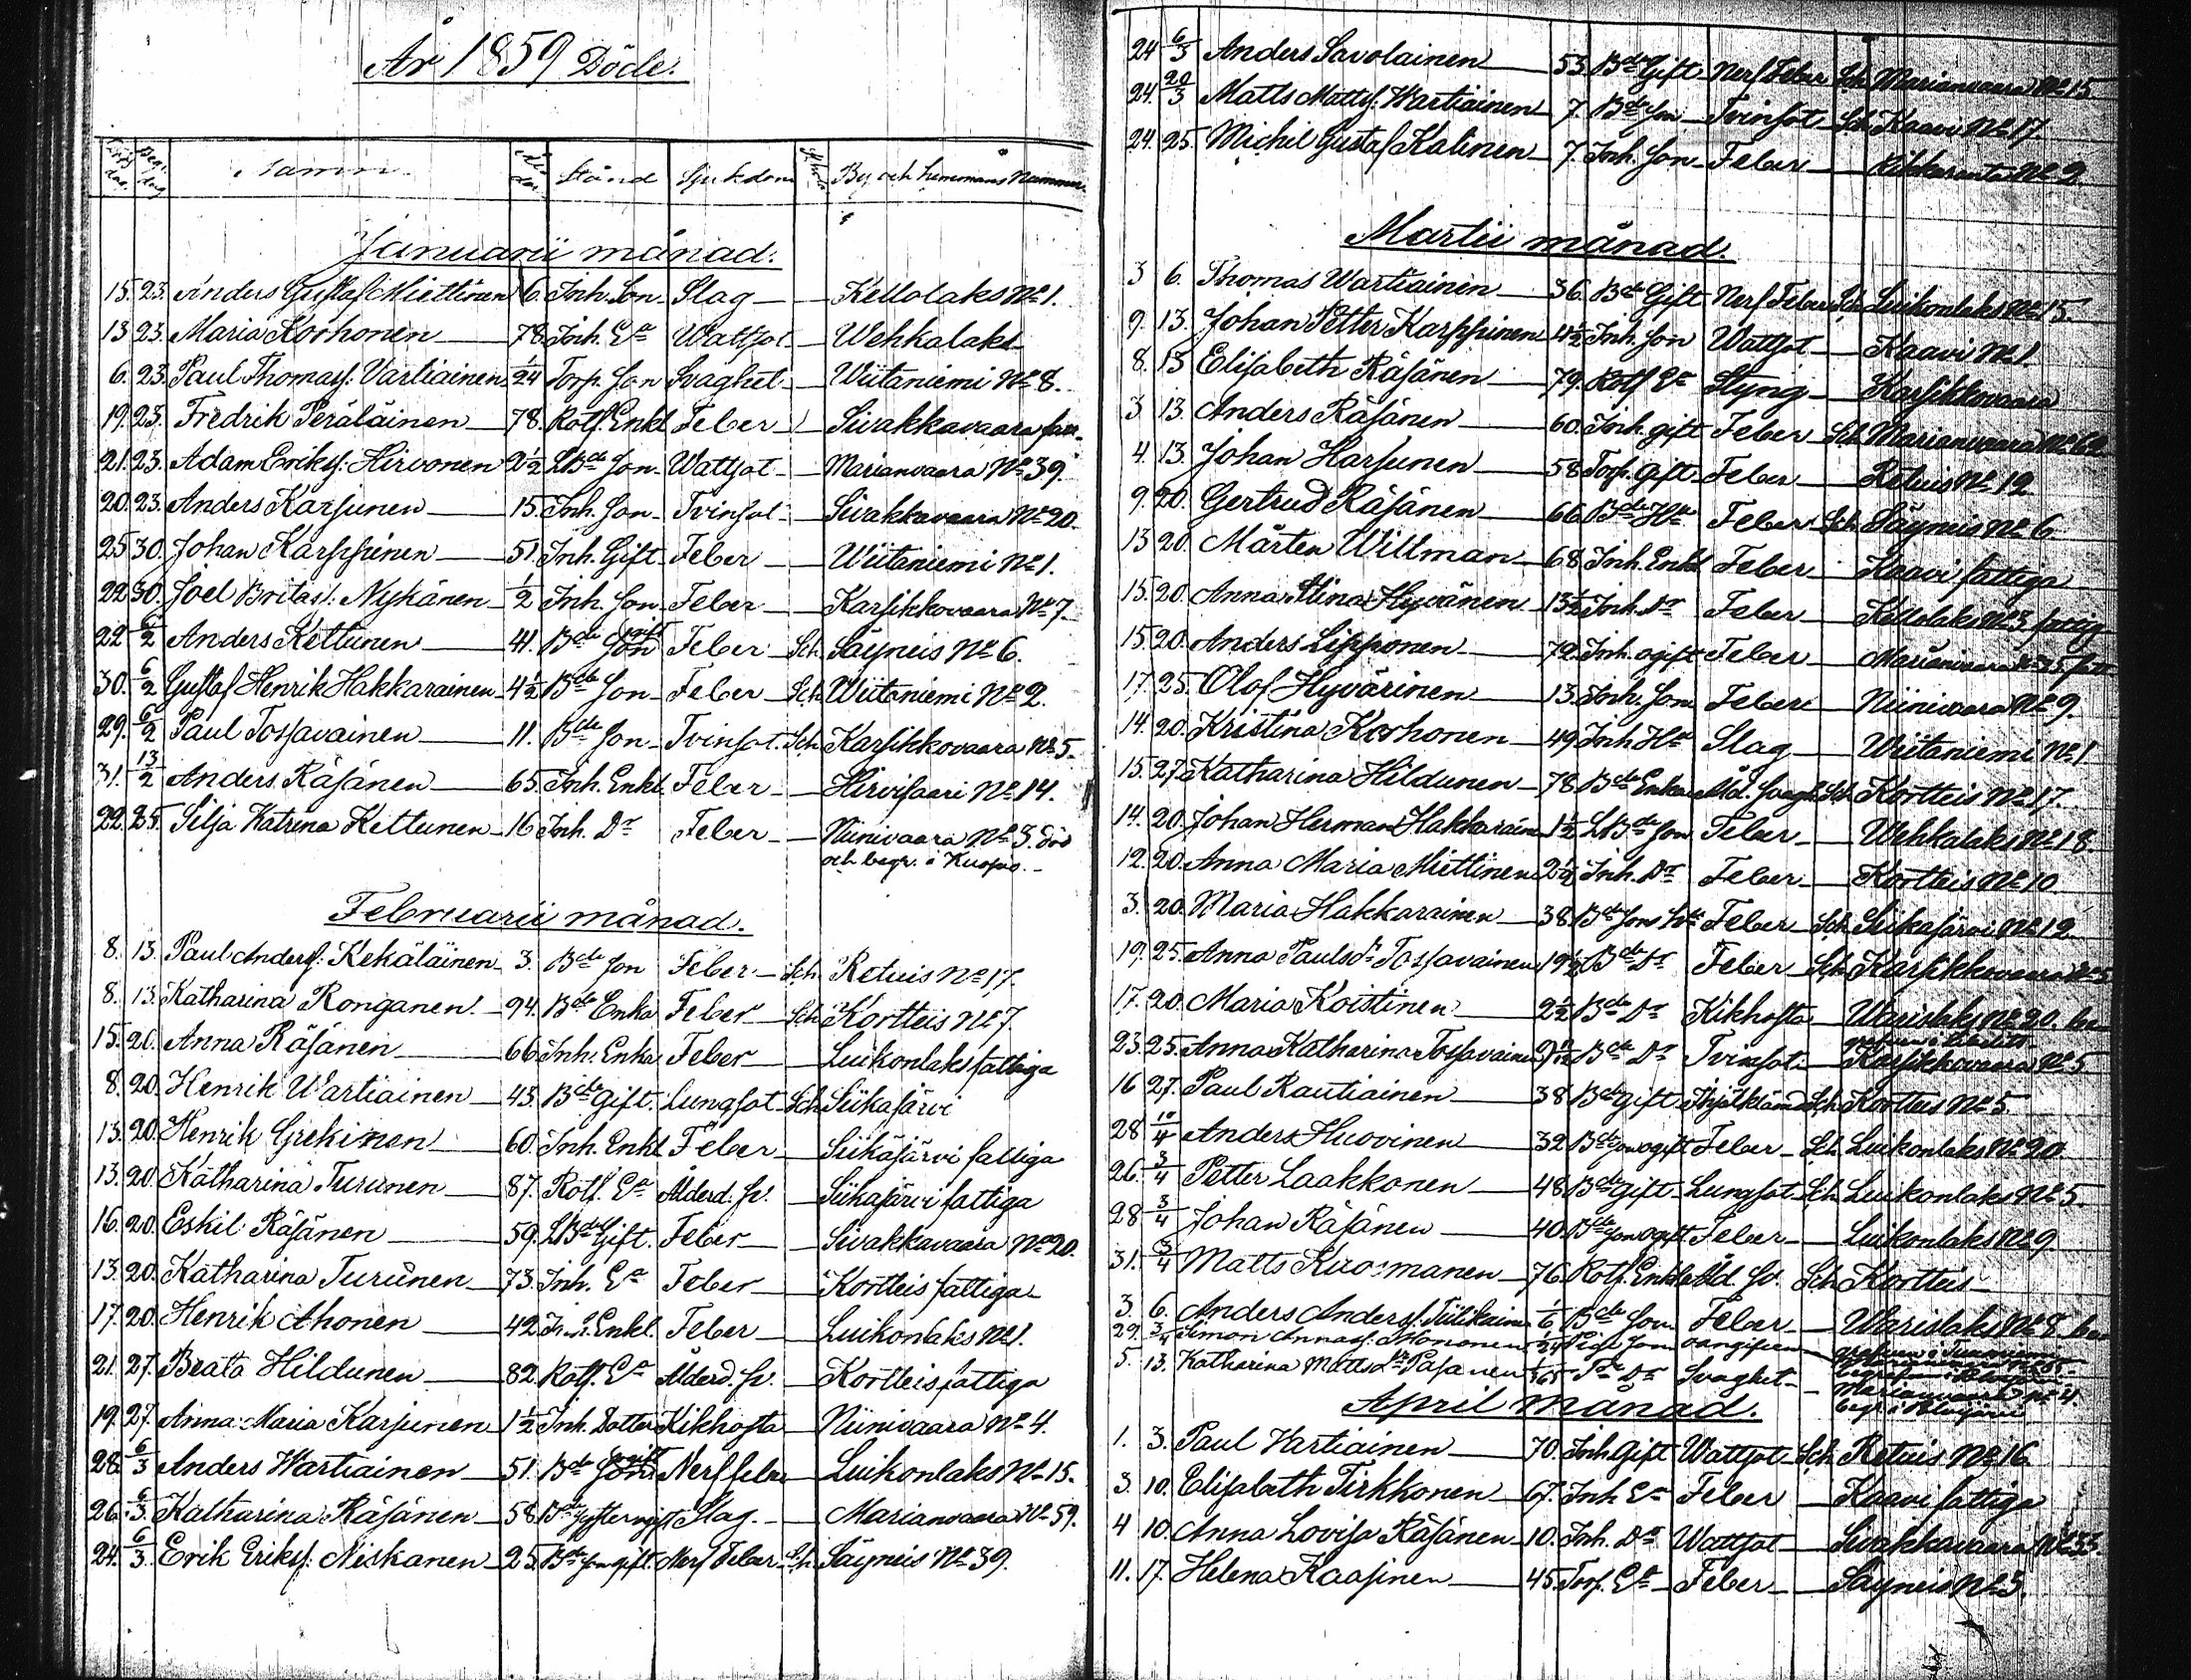 År 1859 Döde.
Namn. Stånd Sjukdom By och hemmans Nummer.
Januarii månad.
15. 23. Anders Gustaf Miettinen 6. Inh. Son Slag Kellolaks No 1.
13 23. Maria Korhonen 78. Inh. Ea Wattsot Wehkalaks
6. 23. Paul Thomass: Vartiainen 1/24 Torp. Son Svaghet Wiitaniemi No 8.
19. 23. Fredrik Peräläinen 78. Rotf. Enkl Feber Sivakkavaara
21. 23. Adam Eriks: Hirvonen 2 1/2 LBde Son Wattsot Marianvaara No 39.
20. 23. Anders Karjunen 15. Inh. Son Tvinsot Sivakkavaara No 20.
25 30. Johan Karppinen 51. Inh. Gift Feber Wiitaniemi No 1.
22 30. Joel Britas: Nykänen 1/2 Inh. Son Feber Karsikkovaara No 7.
22 6/2 Anders Kettunen 41. Bde Son gift Feber Sch. Säyneis No 6.
30. 6/2 Gustaf Henrik Hakkarainen 4 1/2 Bde Son Feber Sch. Wiitaniemi No 2.
29. 6/2 Paul Tossavainen 11. Bde Son Tvinsot. Sch. Karsikkovaara No 5.
31. 13/2 Anders Räsänen 65. Inh. Enkl Feber Hirvisaari No 14.
22. 25. Silja Katrina Kettunen 16 Inh. Dr Feber Niinivaara No 3. död
och begr. i Kuopio.
Februarii månad.
8. 13. Paul Anders: Kekäläinen 3. Bde Son Feber Sch. Retuis No 17.
8. 13. Katharina Ronganen 94. Bde Enka Feber Sch Kortteis No 7.
15. 20. Anna Räsänen 66 Inh. Enka Feber Luikonlaks fattiga
8. 20. Henrik Wartiainen 43. Bde Gift. Lungsot Sch Siikajärvi
13. 20. Henrik Grekinen 60. Inh. Enkl Feber Siikajärvi fattiga
13. 20. Katharina Turunen 87. Rotf. Ea Ålderd. sv. Siikajärvi fattiga
16. 20. Eskil Räsänen 59. LBde Gift. Feber Sivakkavaara No 20.
13. 20. Katharina Turunen 73. Inh. Ea Feber Kortteis fattiga
17. 20. Henrik Ahonen 42. Inh. Enkl. Feber Luikonlaks No 1.
21. 27. Brata Hildunen 82. Rotf. Ea Ålderd. sv. Kortteis fattiga
19. 27. Anna Maria Karjunen 1 1/2 Inh. Dotter Kikhosta Niinivaara No 4.
28. 6/3 Anders Wartiainen 51. Bde Son gift Nerffeber Luikonlaks No 15.
26. 6/3 Katharina Räsänen 58. Bde Slag Marianvaara No 59.
24. 6/3 Erik Eriks: Niskanen 25. Bde Son gift. Nerf Feber Sch. Säyneis No 39.
24 6/3 Anders Savolainen 53. Bde Gift Nerf Feber Sch Marianvaara No 15
24. 20/3 Matts Matts: Wartiainen 7. Bde Son Tvinsot Sch Kaavi No 17.
24. 25. Michel Gustaf Kalinen 7. Inh. Son Feber No 2.
Martii månad.
3 6. Thomas Wartiainen 36. Bde Gift Nerf Feber Sch Luikonlaks No 15.
9. 13. Johan Petter Karppinen 4 1/2 Inh. Son Wattsot Kaavi No 1.
8. 13 Elisabeth Räsänen 79. Rotf Ea Styng Karsikkovaara
3 13. Anders Räsänen 60. Inh. gift Feber Sch Marianvaara No 62
4. 13. Johan Harjunen 58 Torp. Gift Feber Retuis No 12
9. 20. Gertrud Räsänen 66. Bde Hu Feber Sch Säyneis No 6
13 20. Mårten Willman 68. Inh. Enkl Feber Kaavi fattiga
15. 20. Anna Stina Hyvänen 13 1/2 Inh. Dr Feber Kellolaks No 3. fattig
15. 20. Anders Lipponen 72. Inh. ogift Feber Marianvaara
17. 25. Olof Hyvärinen 13. Inh. Son Feber Niinivaara No 9.
14. 20. Kristina Korhonen 49 Inh Hu Slag Wiitaniemi No 1
15. 27. Katharina Hildunen 78 Bde Enka Åld. Svagh. Sch Kortteis No 17.
14. 20. Johan Herman Hakkarainen 1 1/2 LBde Son Feber Wehkalaks No 18.
12. 20. Anna Maria Miettinen Inh. Dr Feber Kortteis No 10
3. 20. Maria Hakkarainen 38. Bde Sons Feber Sch Siikajärvi No 12.
19. 25. Anna Paulsdr Tossavainen Bde Dr Feber Sch Karsikkovaara No 5
17. 20. Maria Koistinen 2 1/2 Bde Dr Kikhosta Warislaks No 20. be
23. 25. Anna Katharina Tossavainen Bde Dr Tvinsot Karsikkovaara No 5
16 27. Paul Rautiainen 38 Bde gift Sch Kortteis No 5
28 10/4 Anders Huovinen 32 Bde Son ogift Feber Sch Luikonlaks No 20
26. 3/4 Petter Laakkonen 48 Bde gift Lungsot Sch Luikonlaks No 5.
28 3/4 Johan Räsänen 40. Bde Son ogift Feber Luikonlaks No 9
31. 3/4 Matts Kuosmanen 76. Rotf. Enkl Åld. sv. Sch Kortteis
3. 6. Anders Anders: Tiilikainen 1/6 Bde Son Feber Warislaks No 8. be
29. 3/4 Simon Annas: 1/24 Pigs Son oangifven
5. 13. Katharina Matts Dr Pasanen Dr Svaghet Marianvaara No 4.
April månad.
1. 3. Paul Vartiainen 70. Inh Gift Wattsot Sch Retuis No 16
3. 10. Elisabeth Tirkkonen 67. Inh Ea Feber Kaavi fattiga
4 10. Anna Lovisa Räsänen 10. Inh. Dr Wattsot Sivakkavaara No 33.
11. 17. Helena Kaasinen 45. Torp. Ea Feber Säyneis No 3.